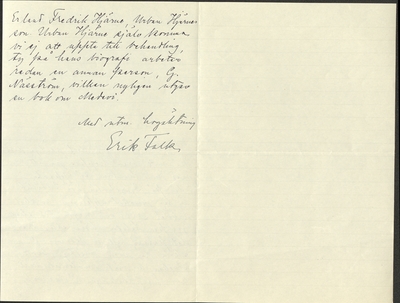 Erland, Fredrik Hjärne, Urban Hjärne
son. Urban Hjärne själv komma
vi ej att uppta till behandling,
ty på hans biografi arbetar
redan en annan person, G.
Näsström, vilken nyligen utgav
en bok om Medevi.
Med utm. högaktning
Erik Falk.